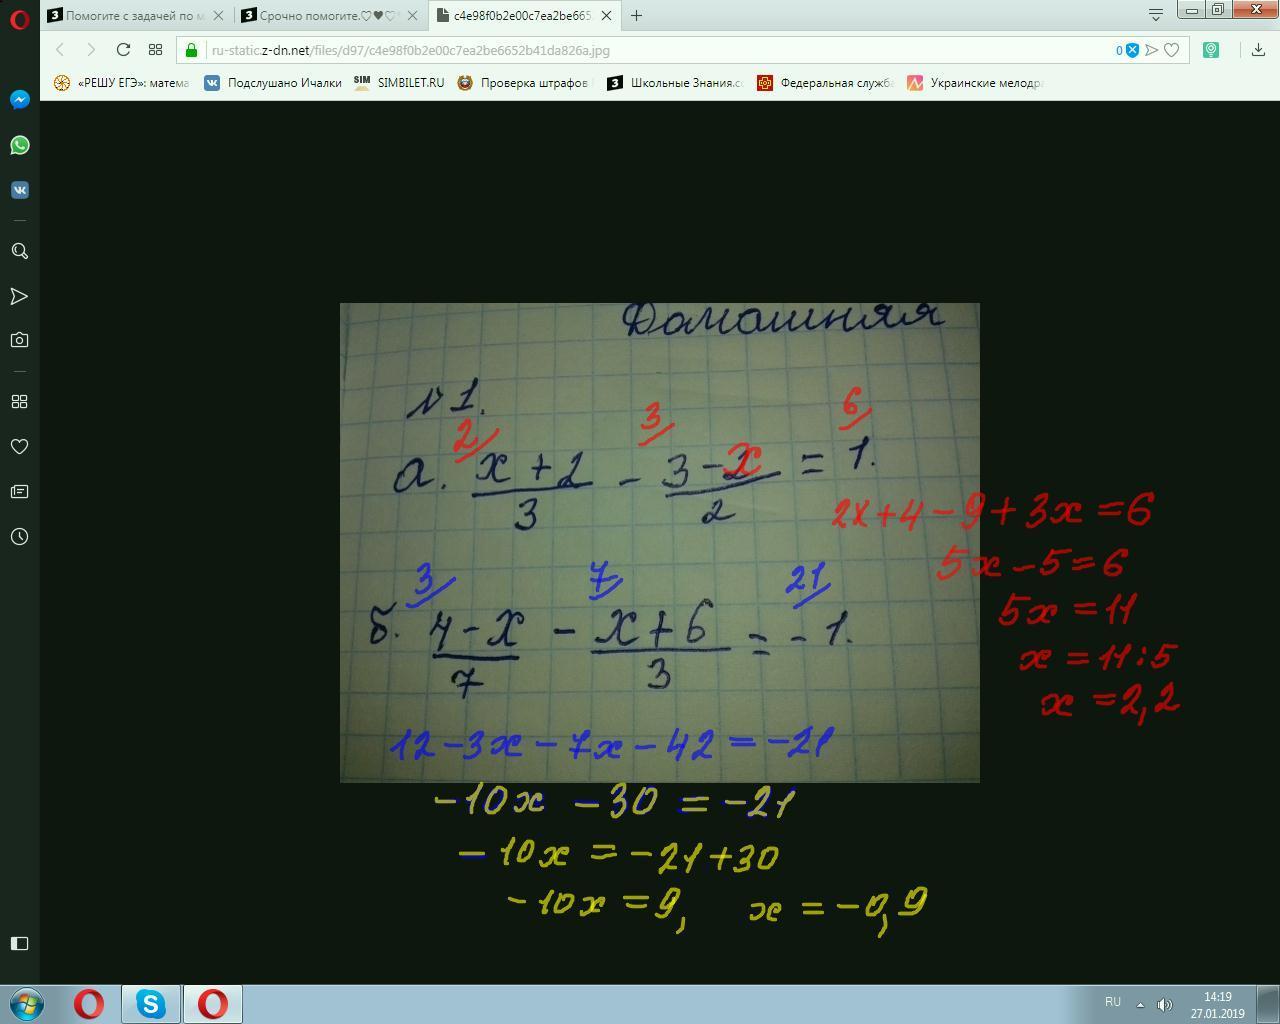 Помогите с задачей по м
Срочно помогите.♡♥♡
c4e98f0b2e00c7ea2be665
ru-static.z-dn.net/files/d97/c4e98f0b2e00c7ea2be6652b41da826a.jpg
0
«РЕШУ ЕГЭ»: матема
Подслушано Ичалки
SIM SIMBILET.RU
Проверка штрафов
Школьные Знания.co
Федеральная служба
Украинские мелодра
Домашняя
№1.
2 3 6
а. x+2/3 - 3-x/2 = 1.
2x+4-9+3x=6
5x-5=6
5x=11
x=11:5
x=2,2
3 7 21
б. 4-x/7 - x+6/3 = -1.
12-3x-7x-42=-21
-10x-30=-21
-10x=-21+30
-10x=9, x=-0,9
RU
14:19
27.01.2019